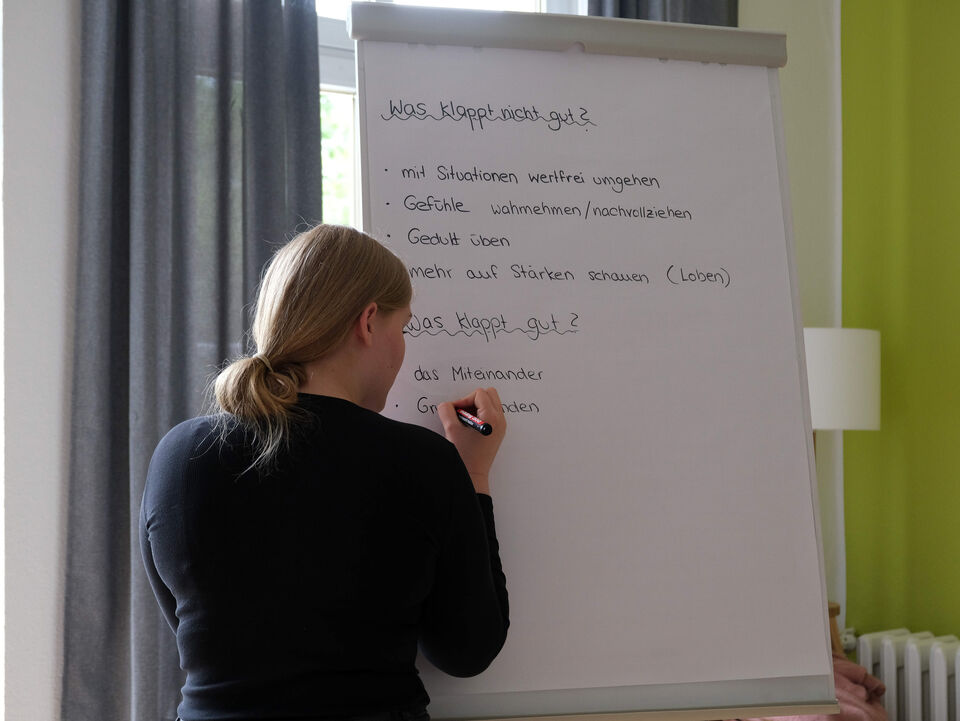 Was klappt nicht gut?
• mit Situationen wertfrei umgehen
• Gefühle wahrnehmen/nachvollziehen
• Gedult üben
mehr auf Stärken schauen (Loben)
Was klappt gut?
das Miteinander
•